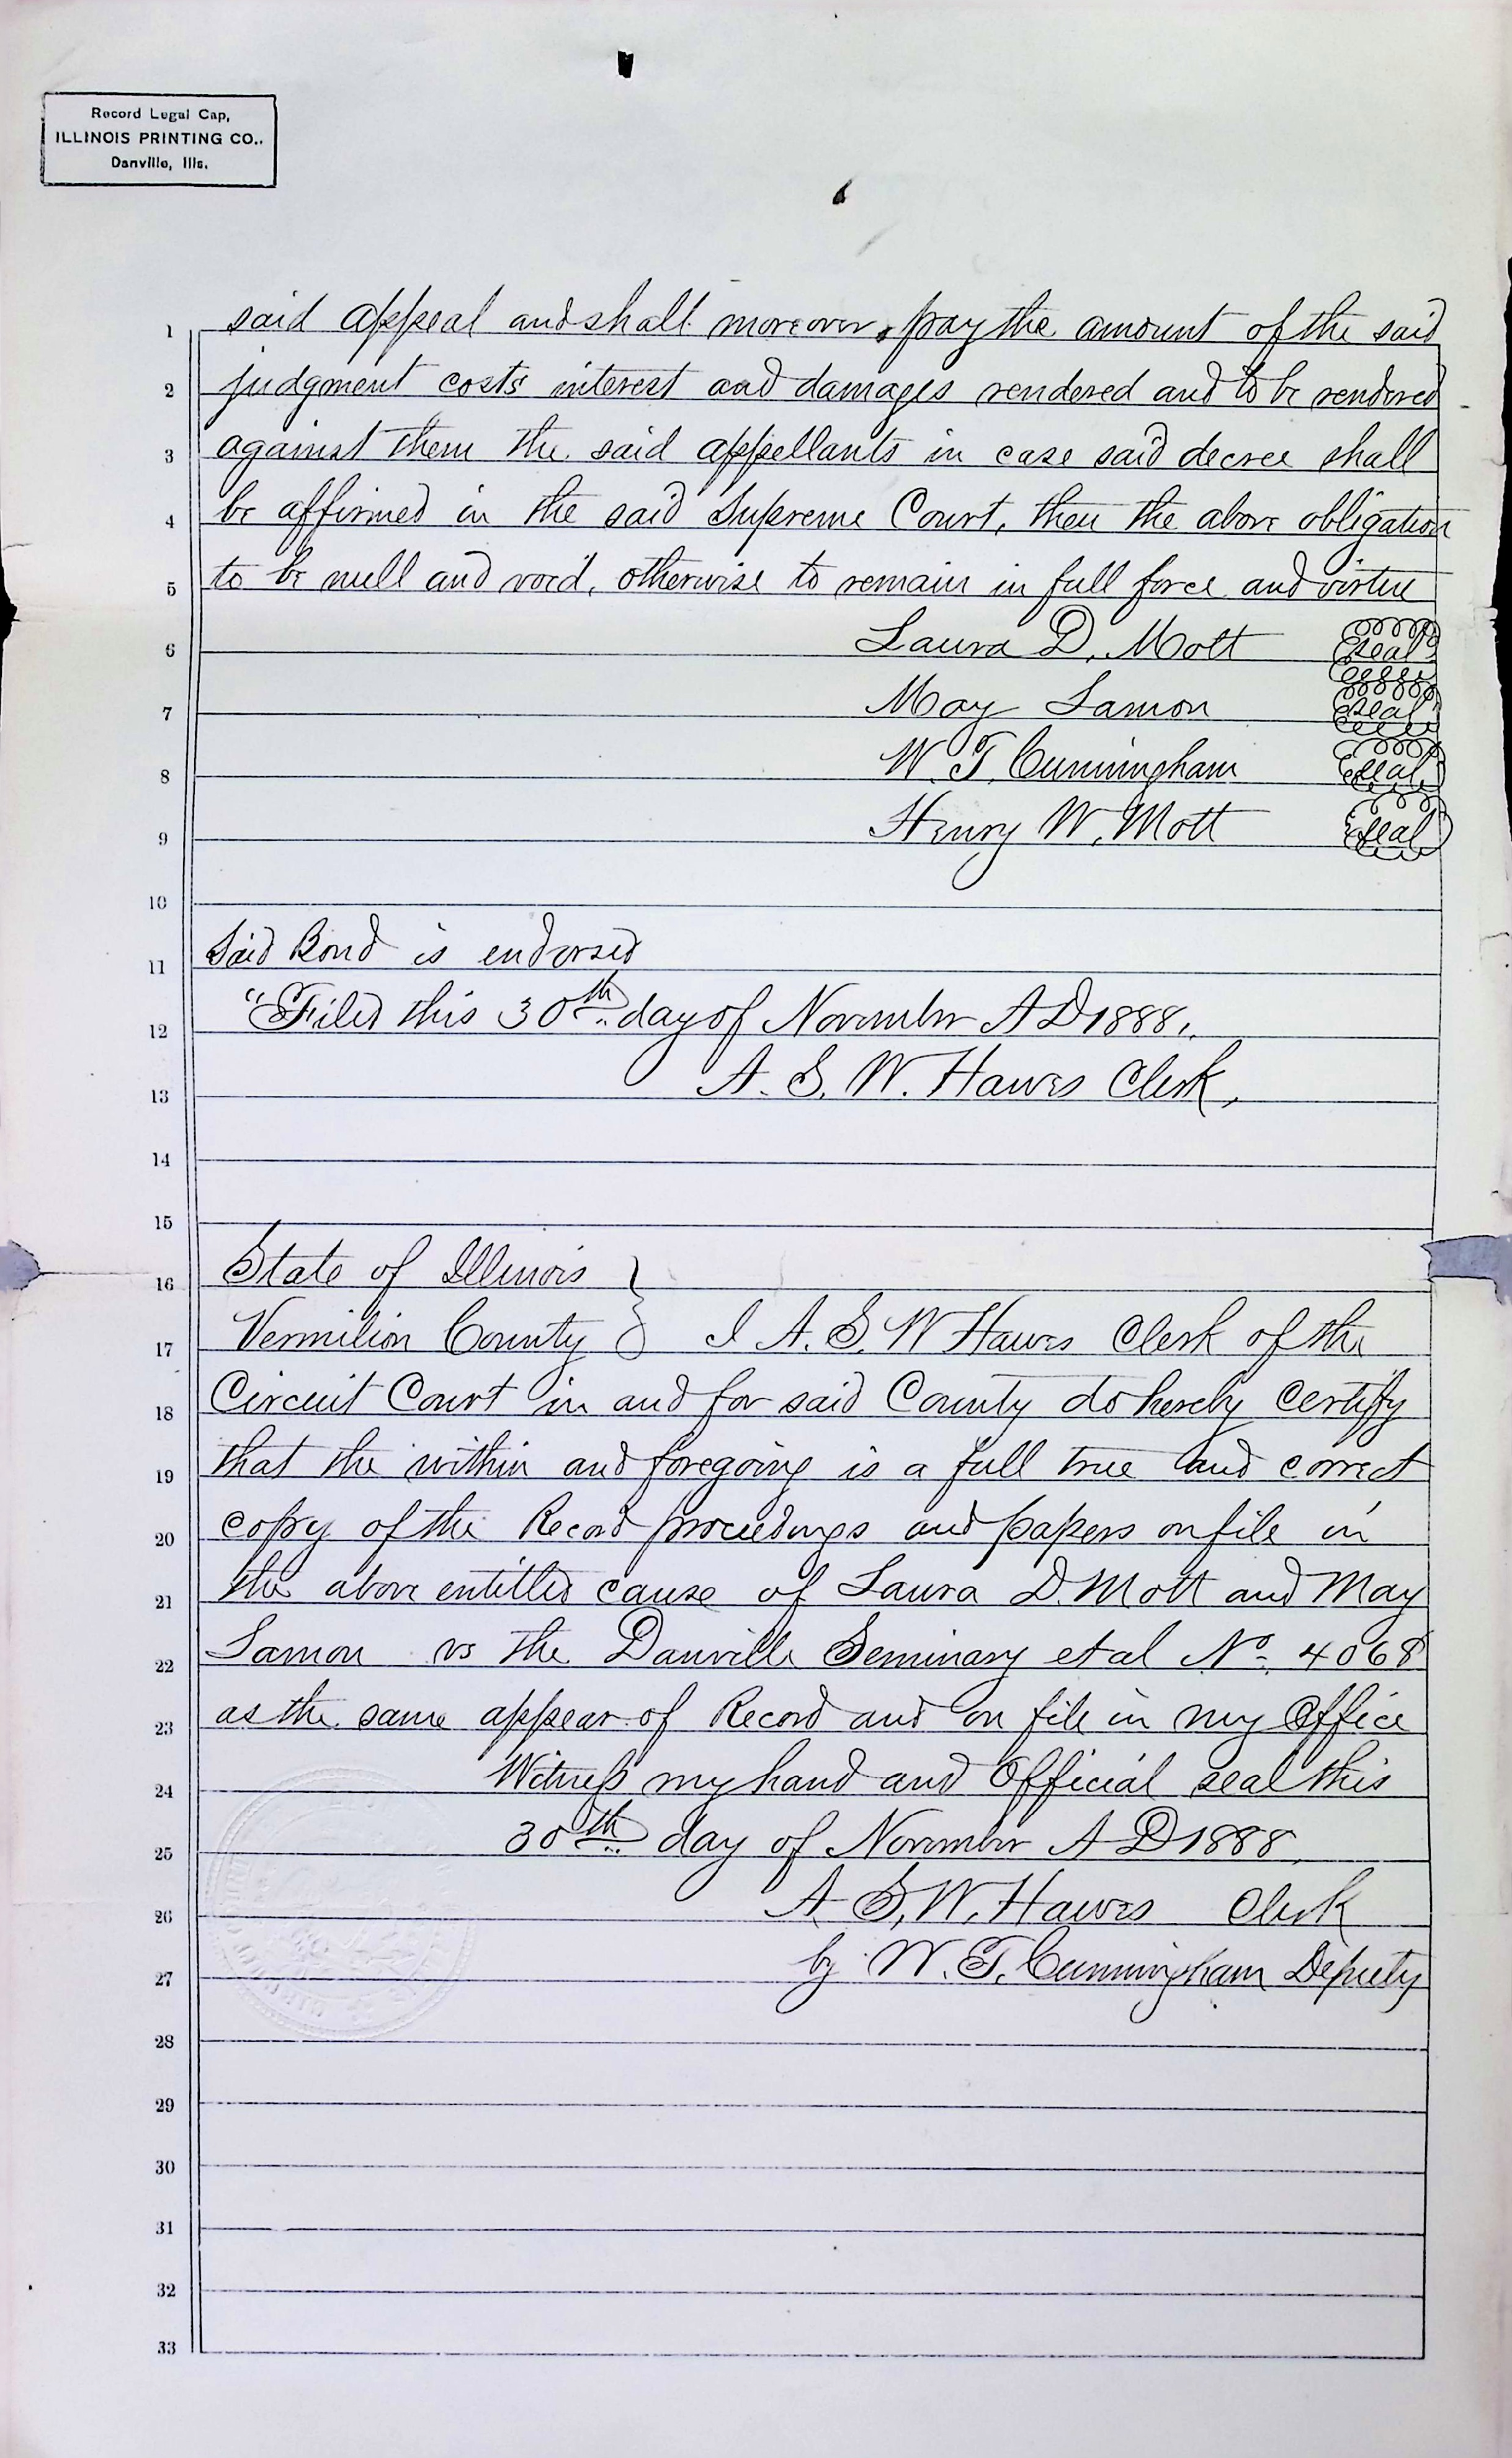 Record Legal Cap,
ILLINOIS PRINTING CO.,
Danville, Ills.
1 said appeal and shall moreover pay the amount of the said
2 judgment costs interest and damages rendered and to be rendered
3 against them the said appellants in case said decree shall
4 be affirmed in the said Supreme Court, then the above obligation
5 to be null and void, otherwise to remain in full force and virtue
6 Laura D. Mott seal
7 May Lamon seal
8 W. T. Cunningham seal
9 Henry W. Mott seal
10
11 Said Bond is endorsed
12 "Filed this 30th day of November A D 1888.
13 A. S. W. Hawes Clerk,
14
15
16 State of Illinois }
17 Vermilion County } I A. S. W Hawes Clerk of the
18 Circuit Court in and for said County do hereby certify
19 that the within and foregoing is a full true and correct
20 copy of the Record proceedings and papers on file in
21 the above entitled cause of Laura D. Mott and May
22 Lamon vs the Danville Seminary et al No. 4068
23 as the same appear of Record and on file in my Office
24 Witness my hand and Official seal this
25 30th day of November A D 1888,
26 A. S. W. Hawes Clerk
27 by W. T. Cunningham Deputy
28
29
30
31
32
33